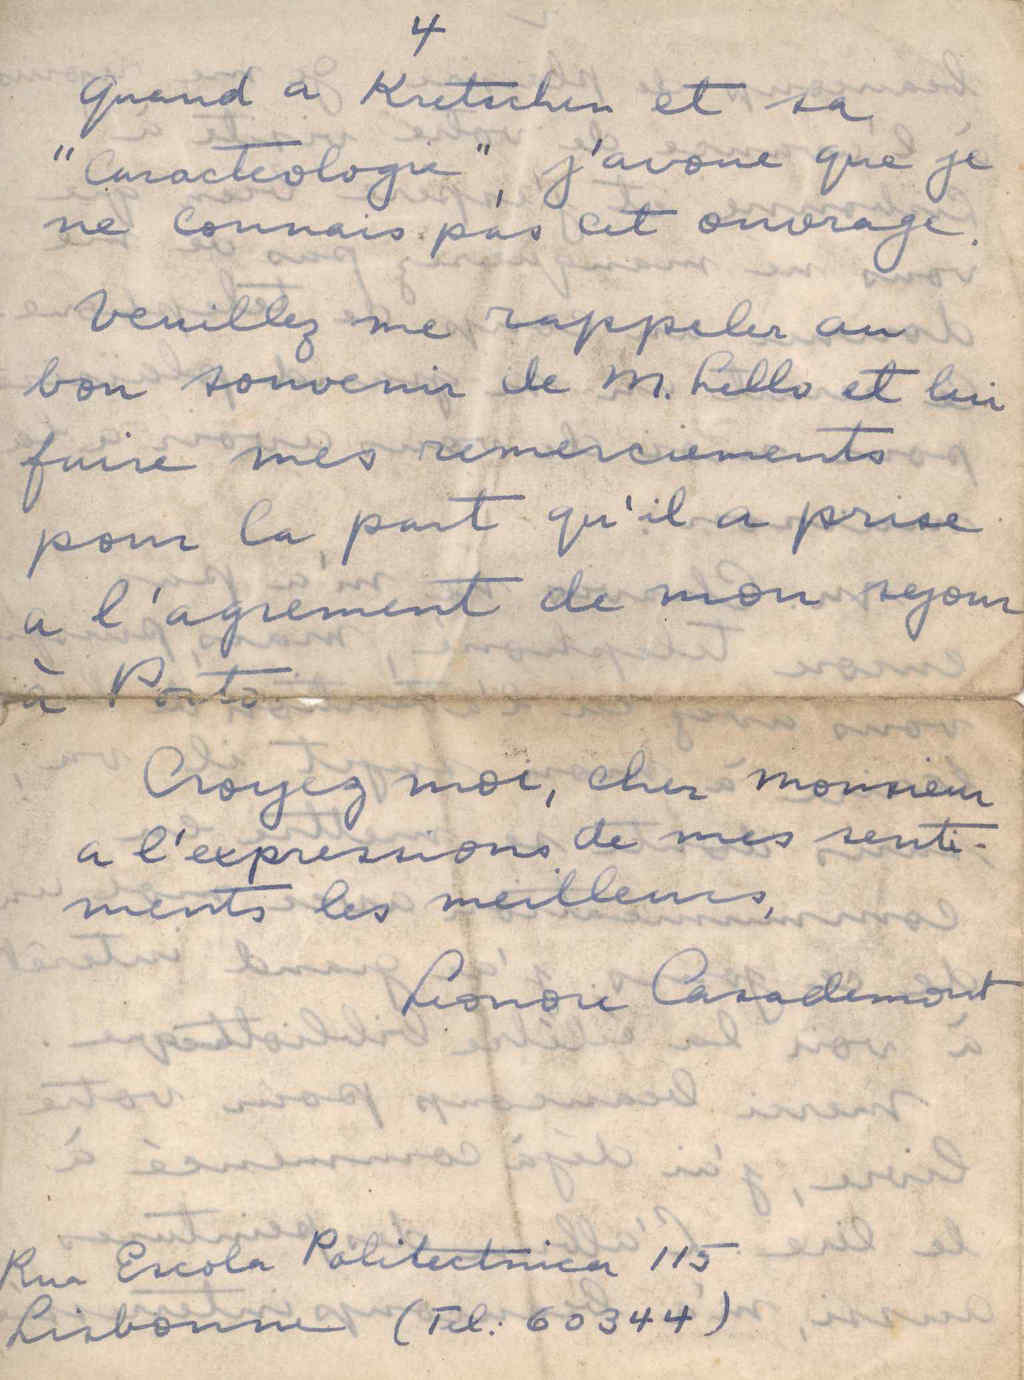 4
Quand a Kretschen et sa
"Caracteologie", j'avoue que je
ne connais pas cet ouvrage.
Veuillez me rappeler au
bon souvenir de M. Lello et lui
faire mes remerciements
pour la part qu'il a prise
a l'agrement de mon sejour
à Porto.
Croyez moi, cher Monsieur
a l'expressions de mes senti-
ments les meilleurs,
Leonore Casademont
Rua Escola Politectnica 115
Lisbonne (Tel: 60344)